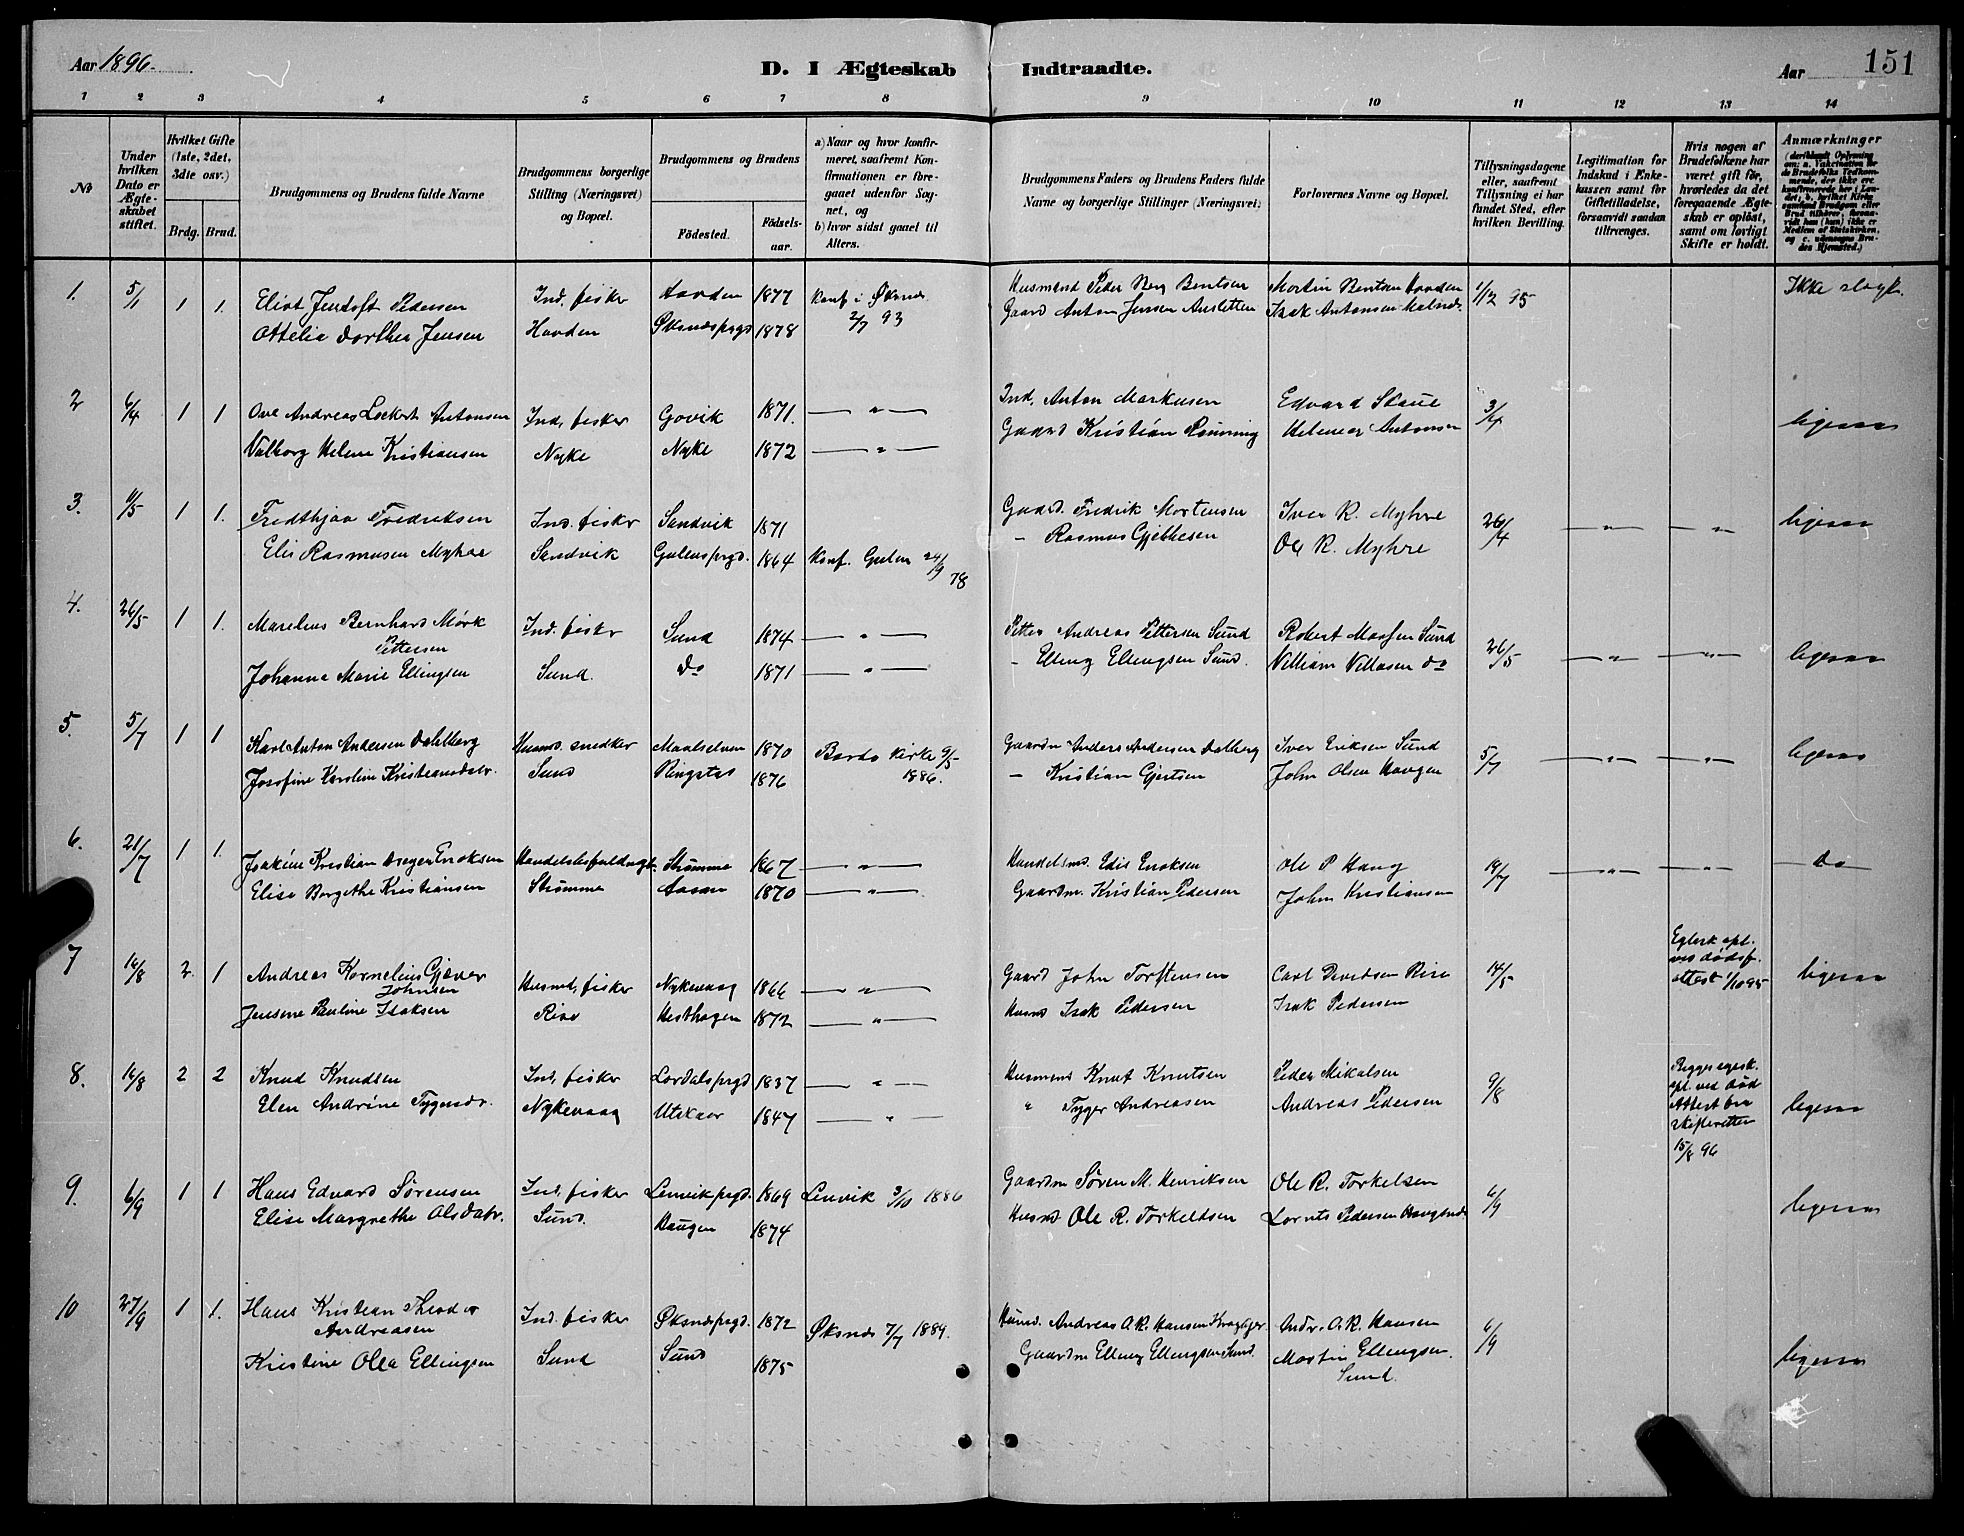 Aar 1896.
D. I Ægteskab Indtraadte.
Aar 151
1 2 3 4 5 6 7 8 9 10 11 12 13 14
No
Under hvilken Dato er Ægteskabet stiftet.
Hvilket Gifte (1ste, 2det, 3die osv.)
Brdg. Brud.
Brudgommens og Brudens fulde Navne
Brudgommens borgerlige Stilling (Næringsvei) og Bopæl.
Brudgommens og Brudens
Födested. Födselsaar.
a) Naar og hvor konfirmeret, saafremt Konfirmationen er foregaaet udenfor Sognet, og
b) hvor sidst gaaet til Alters.
Brudgommens Faders og Brudens Faders fulde Navne og borgerlige Stillinger (Næringsvei)
Forlovernes Navne og Bopæl.
Tillysningsdagene eller, saafremt Tillysning ei har fundet Sted, efter hvilken Bevilling.
Legitimation for Indskud i Enkekassen samt for Giftetilladelse, forsaavidt saadan tiltrænges.
Hvis nogen af Brudefolkene har været gift för, hvorledes da det foregaaende Ægteskab er oplöst, samt om lovligt Skifte er holdt.
Anmærkninger
1. 5/1 1 1. Eliot Jentoft Pedersen Ind. fisker Hovden 1877 Konf i Øksnes Husmand Peder Berg Bentsen Martin Bentsen Hovden 1/12 95 Ikke slægt.
Ottelia Dorthea Jensen Hovden Øksnæsprgd 1878 2/7 93 Gaard Anton Jensen Isak Antonsen
2 6/4 1 1 Ove Andreas Lockert Antonsen Ind. fisker Govik 1871. — " — Ind. Anton Markusen Edvard Staue 3/4 ligesaa
Valborg Helene Kristiansen Nyke Nyke 1872 — " — Gaard Kristian Rønning Antonsen
3. 11/5 1 1. Fredthjov Fredriksen Ind. fisker Sandvik 1871 Gaard. Fredrik Mortensen Iver R. Myhre 26/4 — " — — " — ligesaa
Elis Rasmusen Myhre Sandvik Gulensprgd. 1864 Konf. Gulen 24/9 78 — Rasmus Ole R. Myhre
4. 26/5 1 1. Marelius Bernhard Mørk Ind. fisker Sund 1874 — " — Petter Andreas Pettersen Sund Robert Sund 26/5 — " — — " — ligesaa
Pettersen
Johanna Marie Ellingsen Sund. do 1871 — " — — Elling Ellingsen Sund. Villiam Villasen do
5. 5/7 1 1 Karl Anton Andersen Dahlberg Husmd. snedker Maalselven 1870 Bardo kirke 9/5 Gaardm Anders Andersen Dalberg Iver Eriksen Sund 5/7 — " — — " — ligesaa
Josefine Karoline Kristiansdatr. Sund Ringstad 1876 1886. — Kristian Gjertsen John Olsen Haugen
6. 21/7 1 1. Joakim Kristian Dreyer Enoksen Handelsbefuldmgt. Strømme 1867 — " — Handelsmd. Edis Enoksen Ole P Haug 19/7 — " — — " — do
Elise Bergethe Kristiansen Strømme Aasan 1870 — " — Gaardm. Kristian Pedersen John Kristiansen
7 16/8 2 1 Andreas Kornelius Gjæver Husmd. fisker Nykevaag 1866 — " — Gaard John Torstensen Carl Davidsen Rise 14/5 ligesaa
Johnsen
Jensine Pauline Isaksen Rise Hesthagen 1872 — " — Husmd Isak Pedersen Isak Pedersen
Egtesk opl. ved dødsf. attest 1/10 95
8. 16/8 2 2 Knud Knudsen Ind. fisker Lørdalsprgd 1837 — " — Husmand Knut Knutsen Peder Mikalsen 9/8 ligesaa
Elen Andrine Tygersdr. Nykevaag Utskaar 1847 — " — " Tyger Andreasen Andreas Pedersen
Begges egesk. opl. ved død Attest fra skifteretten 15/8 96
9. 6/9 1 1 Hans Edvard Sørensen Ind. fisker Lenvikprgd. 1869 Lenvik 3/10 1886 Gaardm Søren M. Henriksen Ole R. Torkelsen 6/9 ligesaa
Elise Margrethe Olsdatr. Sund. Haugen 1874 Husmd Ole R. Torkeldsen Lornts Pedersen
10 27/9 1 1. Hans Kristian Theodor Ind. fisker Øksnæsprgd. 1872 Øksnæs 7/7 1889. Husmd. Andreas O.R. Hansen Andr. O.R. Hansen 6/9 ligesaa
Andreasen
Kristine Olea Ellingsen Sund Sund 1875 Gaardm Elling Ellingsen Sund. Martin Ellingsen.
Sund.